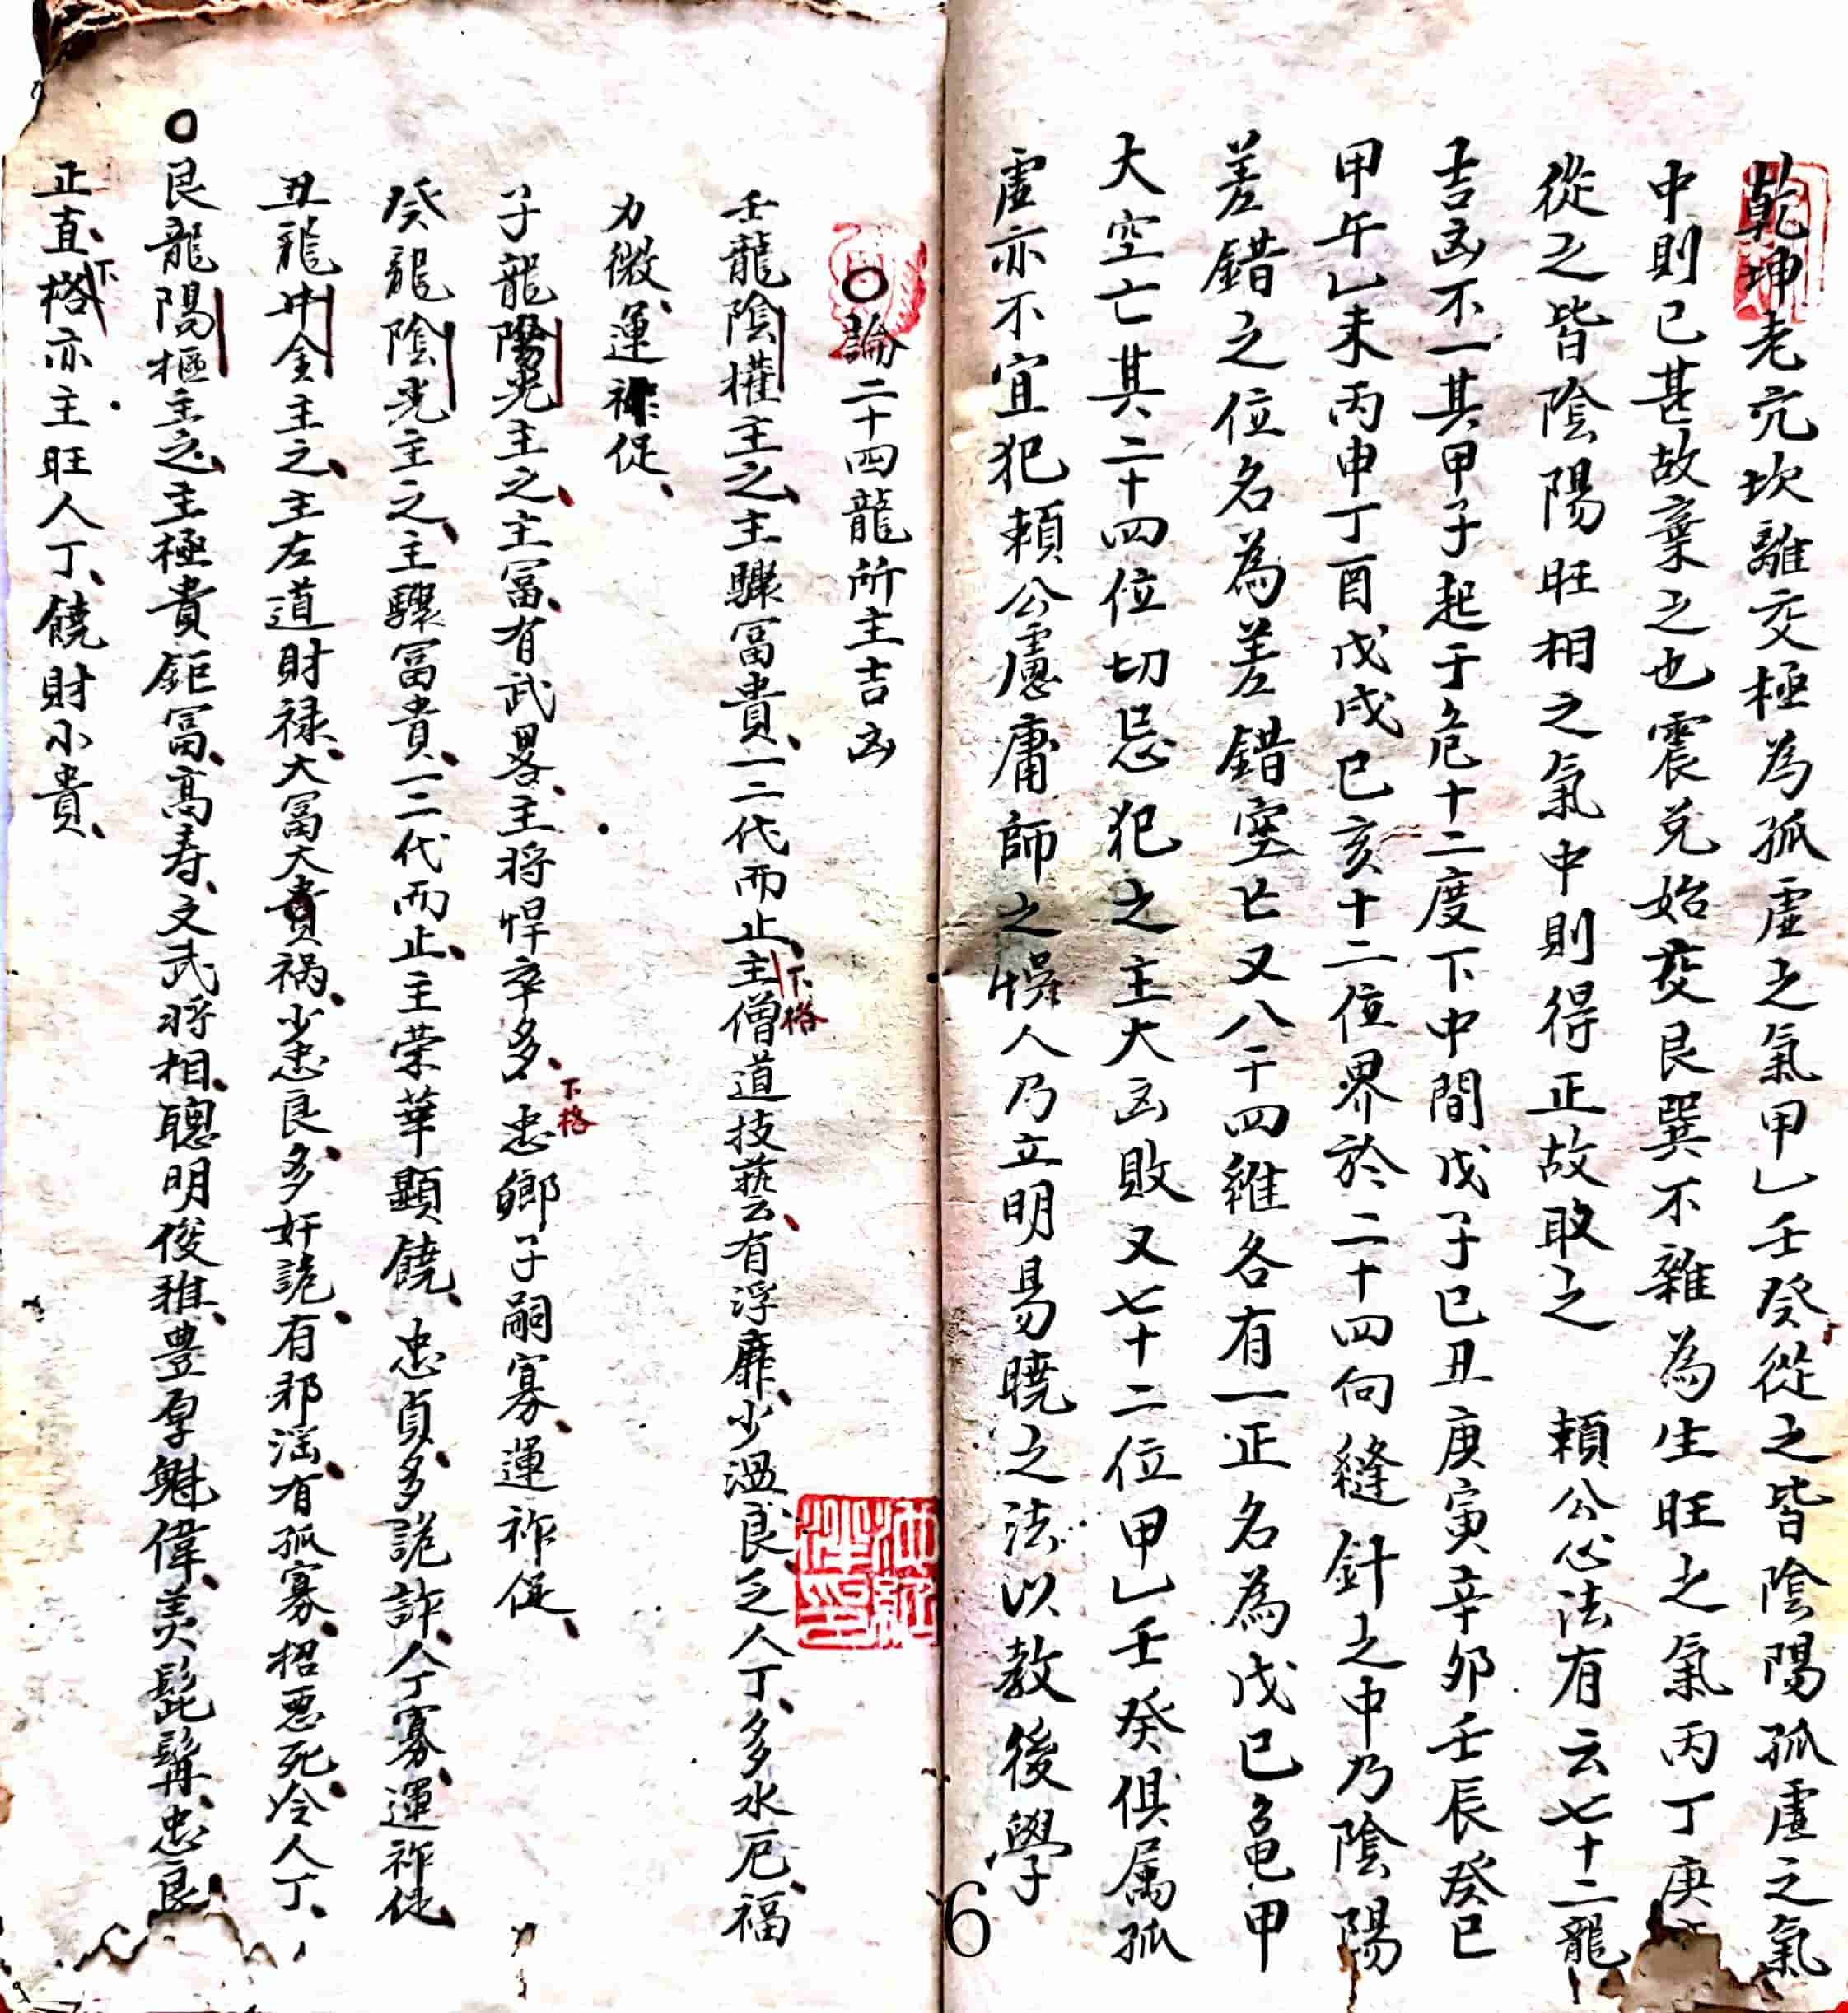 乾坤老亢坎離交極為孤虛之氣甲乙壬癸從之皆陰陽孤虛之氣
中則已甚故棄之也震兌始交艮巽不雜為生旺之氣丙丁庚
從之皆陰陽旺相之氣中則得正故取之　頼公心法有云七十二龍
吉凶不一其甲子起于危十二度下中間戊子己丑庚寅辛卯壬辰癸巳
甲午乙未丙申丁酉戊戌己亥十二位界於二十四向縫針之中乃陰陽
差錯之位名為差錯空亡又八干四維各有一正名為戊己龜甲
大空亡其二十四位切忌犯之主大凶敗又七十二位甲乙壬癸俱属孤
虛亦不宜犯頼公慮庸師之悞人乃立明易曉之法以教後學
○論二十四龍所主吉凶
壬龍陰權主之主驟富貴一二代而止主僧道技藝有浮靡少溫良乏人丁多水厄福
下格
力微運祚促
子龍陽光主之主富有武畧主将悍卒多忠鄉子嗣寡運祚促
下格
癸龍陰光主之主驟富貴一二代而止主荣華顯饒忠貞多詭詐人丁寡運祚促
丑龍牛金主之主左道財禄大富大貴禍少忠良多奸詭有邪淫有孤寡招悪死冷人丁
○艮龍陽樞主之主極貴鉅富高寿文武将相聰明俊雅豊厚魁偉美髭髯忠良
正直下格亦主旺人丁饒財小貴
6